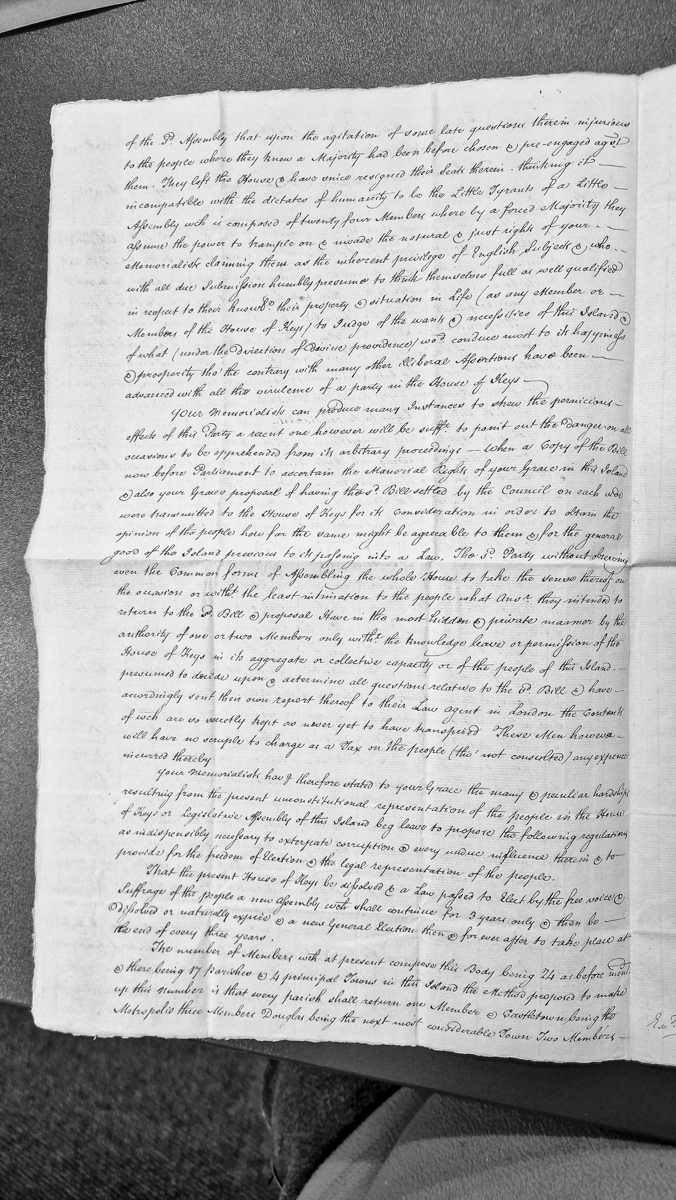 of the sd. Assembly that upon the agitation of some late questions therein injurious
to the people where they knew a Majority had been before chosen & pre-engaged agst
them. They left the House & have since resigned their Seats therein - thinking it
incompatible with the dictates of humanity to be the Little Tyrants of a Little
Assembly wch is composed of twenty four Members where by a forced Majority they
assume the power to trample on & invade the natural & just rights of your
Memorialists claiming them as the inherent privilege of English Subjects & who
with all due Submission humbly presume to think themselves full as well qualified
in respect to their knowle. their property & situation in Life (as any Member or
Members of the House of Keys) to Judge of the wants & necessities of this Island &
of what (under the Direction of Divine providence) wod. conduce most to its happiness
& prosperity tho' the contrary with many other illiberal Assertions have been
advanced with all the virulence of a party in the House of Keys
Your Memorialists can produce many Instances to shew the pernicious
effects of this Party a recent one however will be sufft. to point out the Danger on all
occasions to be apprehended from its arbitrary proceedings — When a Copy of the Bill
now before Parliament to ascertain the Manorial Rights of your Grace in this Island
& also your Graces proposal of having the sd. Bill settled by the Council on each side
were transmitted to the House of Keys for its Consideration in order to obtain the
opinion of the people how far the same might be agreeable to them & for the general
good of the Island previous to its passing into a Law. The sd. Party without observing
even the Common forms of Assembling the whole House to take the sense thereof on
the occasion or witht the least intimation to the people what Ansr. they intended to
return to the sd. Bill & proposal Have in the most hidden & private manner by the
authority of one or two Members only witht. the knowledge leave or permission of the
House of Keys in its aggregate or collective capacity or of the people of this Island
presumed to decide upon & determine all questions relative to the sd. Bill & have
accordingly sent their own report thereof to their Law agent in London the Contents
of wch are so secretly kept as never yet to have transpired These Men however
will have no scruple to charge as a Tax on the people (tho' not consulted) any expence
incurred thereby
Your Memorialists havg therefore stated to your Grace the many & peculiar hardships
resulting from the present unconstitutional representation of the people in the House
of Keys or Legislative Assembly of this Island beg leave to propose the following regulations
as indispensibly necessary to extirpate corruption & every undue influence therein & to
provide for the freedom of Election & the legal representation of the people.
That the present House of Keys be dissolved & a Law passed to Elect by the free voice &
Suffrage of the people a new Assembly wch shall continue for 3 years only & then be
Dissolved or naturally expire & a new General Election then & for ever after to take place at
the end of every three years.
The number of Members wch at present compose this Body being 24 as before mentd
& there being 17 parishes & 4 principal Towns in this Island the Method proposed to make
up this number is that every parish shall return one Member & Castletown being the
Metropolis three Members Douglas being the next most considerable Town Two Members